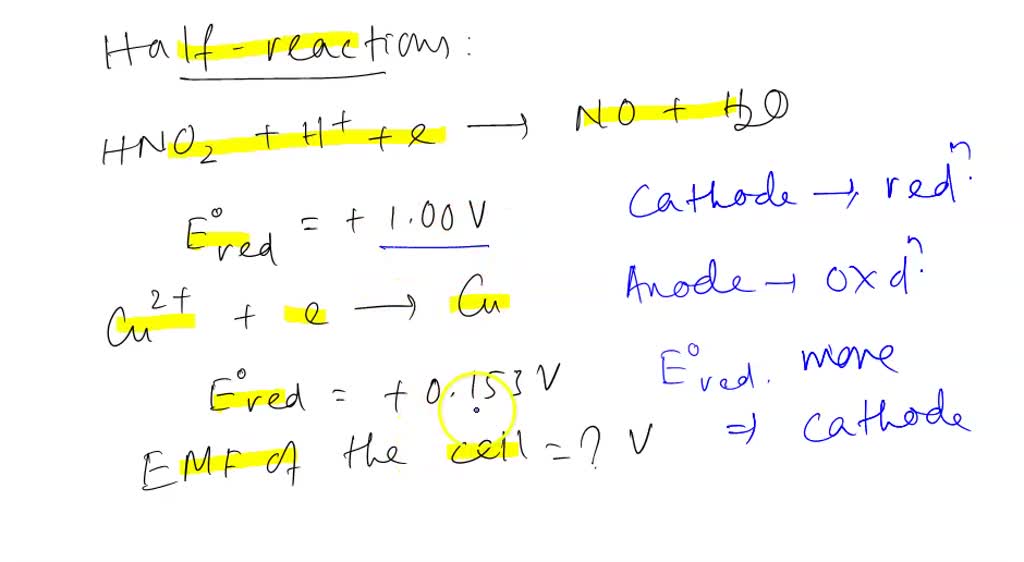 Half-reactions:
HNO₂ + H⁺ + e → NO + H₂O
E°red = + 1.00 V
Cu²⁺ + e → Cu
E°red = + 0.153 V
EMF of the cell = ? V
Cathode → redⁿ.
Anode → oxdⁿ.
E°red. more
⇒ cathode